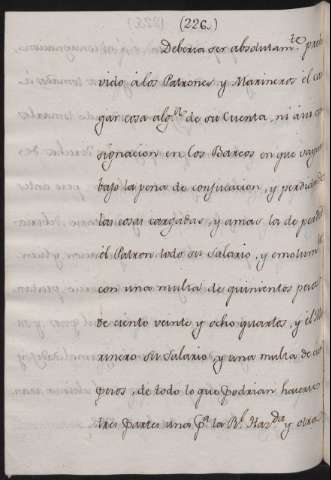 (226.)
Deberia ser absolutam.te prohi
vido á los Patrones y Marineros el car
gar cosa alg.a de su Cuenta, ni aun con
signacion en los Barcos en que vayan
bajo la pena de confiscacion, y perdida de
las cosas cargadas, y amas la de perder
él Patron todo su Salario, y emolum.tos
con una multa de quinientos pesos
de ciento veinte, y ocho quartos, y él Ma
rinero su Salario, y una multa de cien
pesos, de todo lo que podrian hacerse
tres partes una p.a la R.l Haz.da y otra